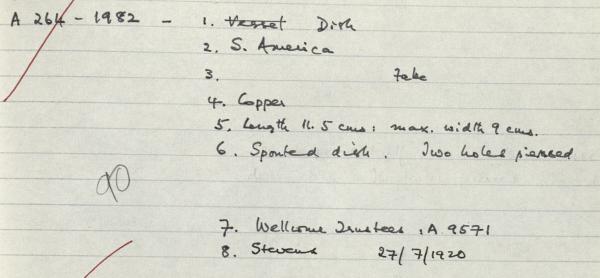 A 264 - 1982 - 1. Vessel Dish
2. S. America
3. Fake
4. Copper
5. Length 11.5 cms: max. width 9 cms.
6. Spouted dish. Two holes pierced
90
7. Wellcome Trustees, A 9571
8. Stevens 27/7/1920